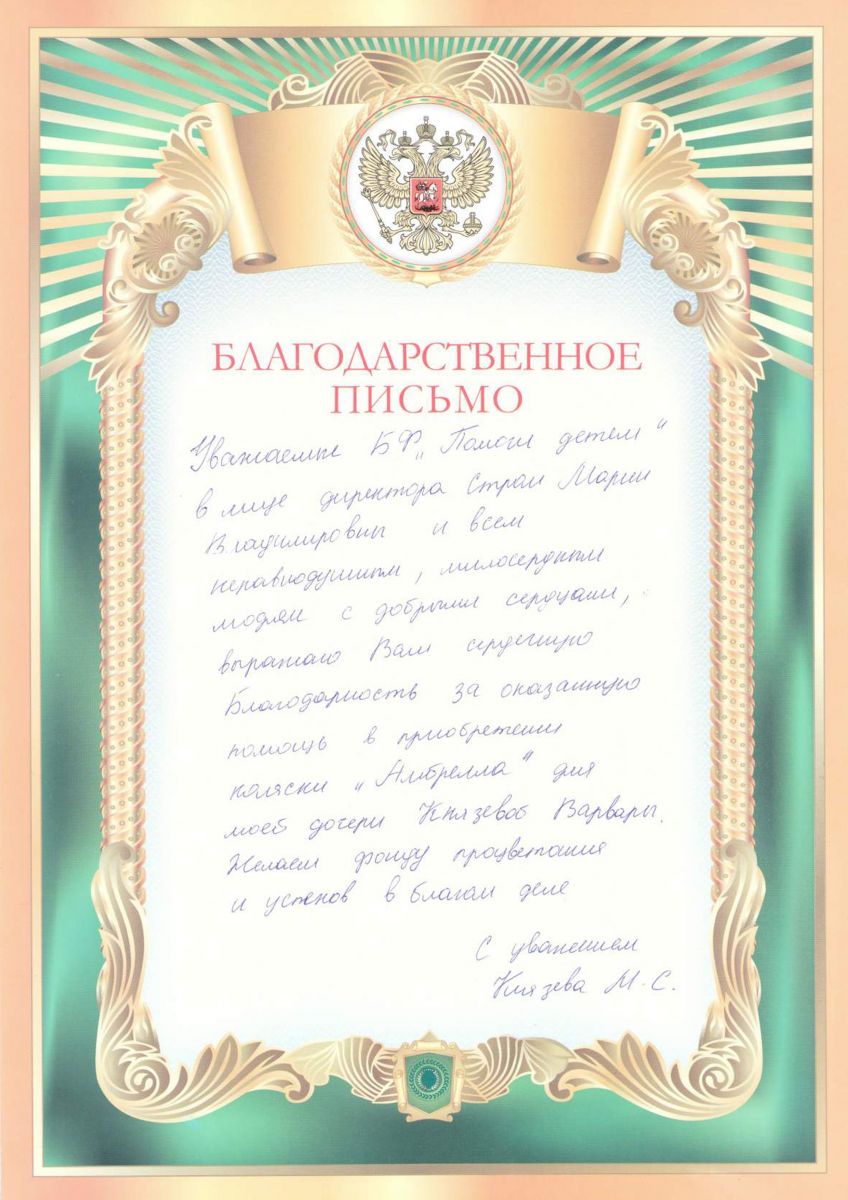 БЛАГОДАРСТВЕННОЕ
ПИСЬМО
Уважаемые БФ „Помоги детям“
в лице директора Страи Марии
Владимировны и всем
неравнодушным, милосердным
людям с добрыми сердцами,
выражаю Вам сердечную
Благодарность за оказанную
помощь в приобретении
коляски „Амбрелла“ для
моей дочери Князевой Варвары.
Желаем фонду процветания
и успехов в благом деле
С уважением
Князева М.С.